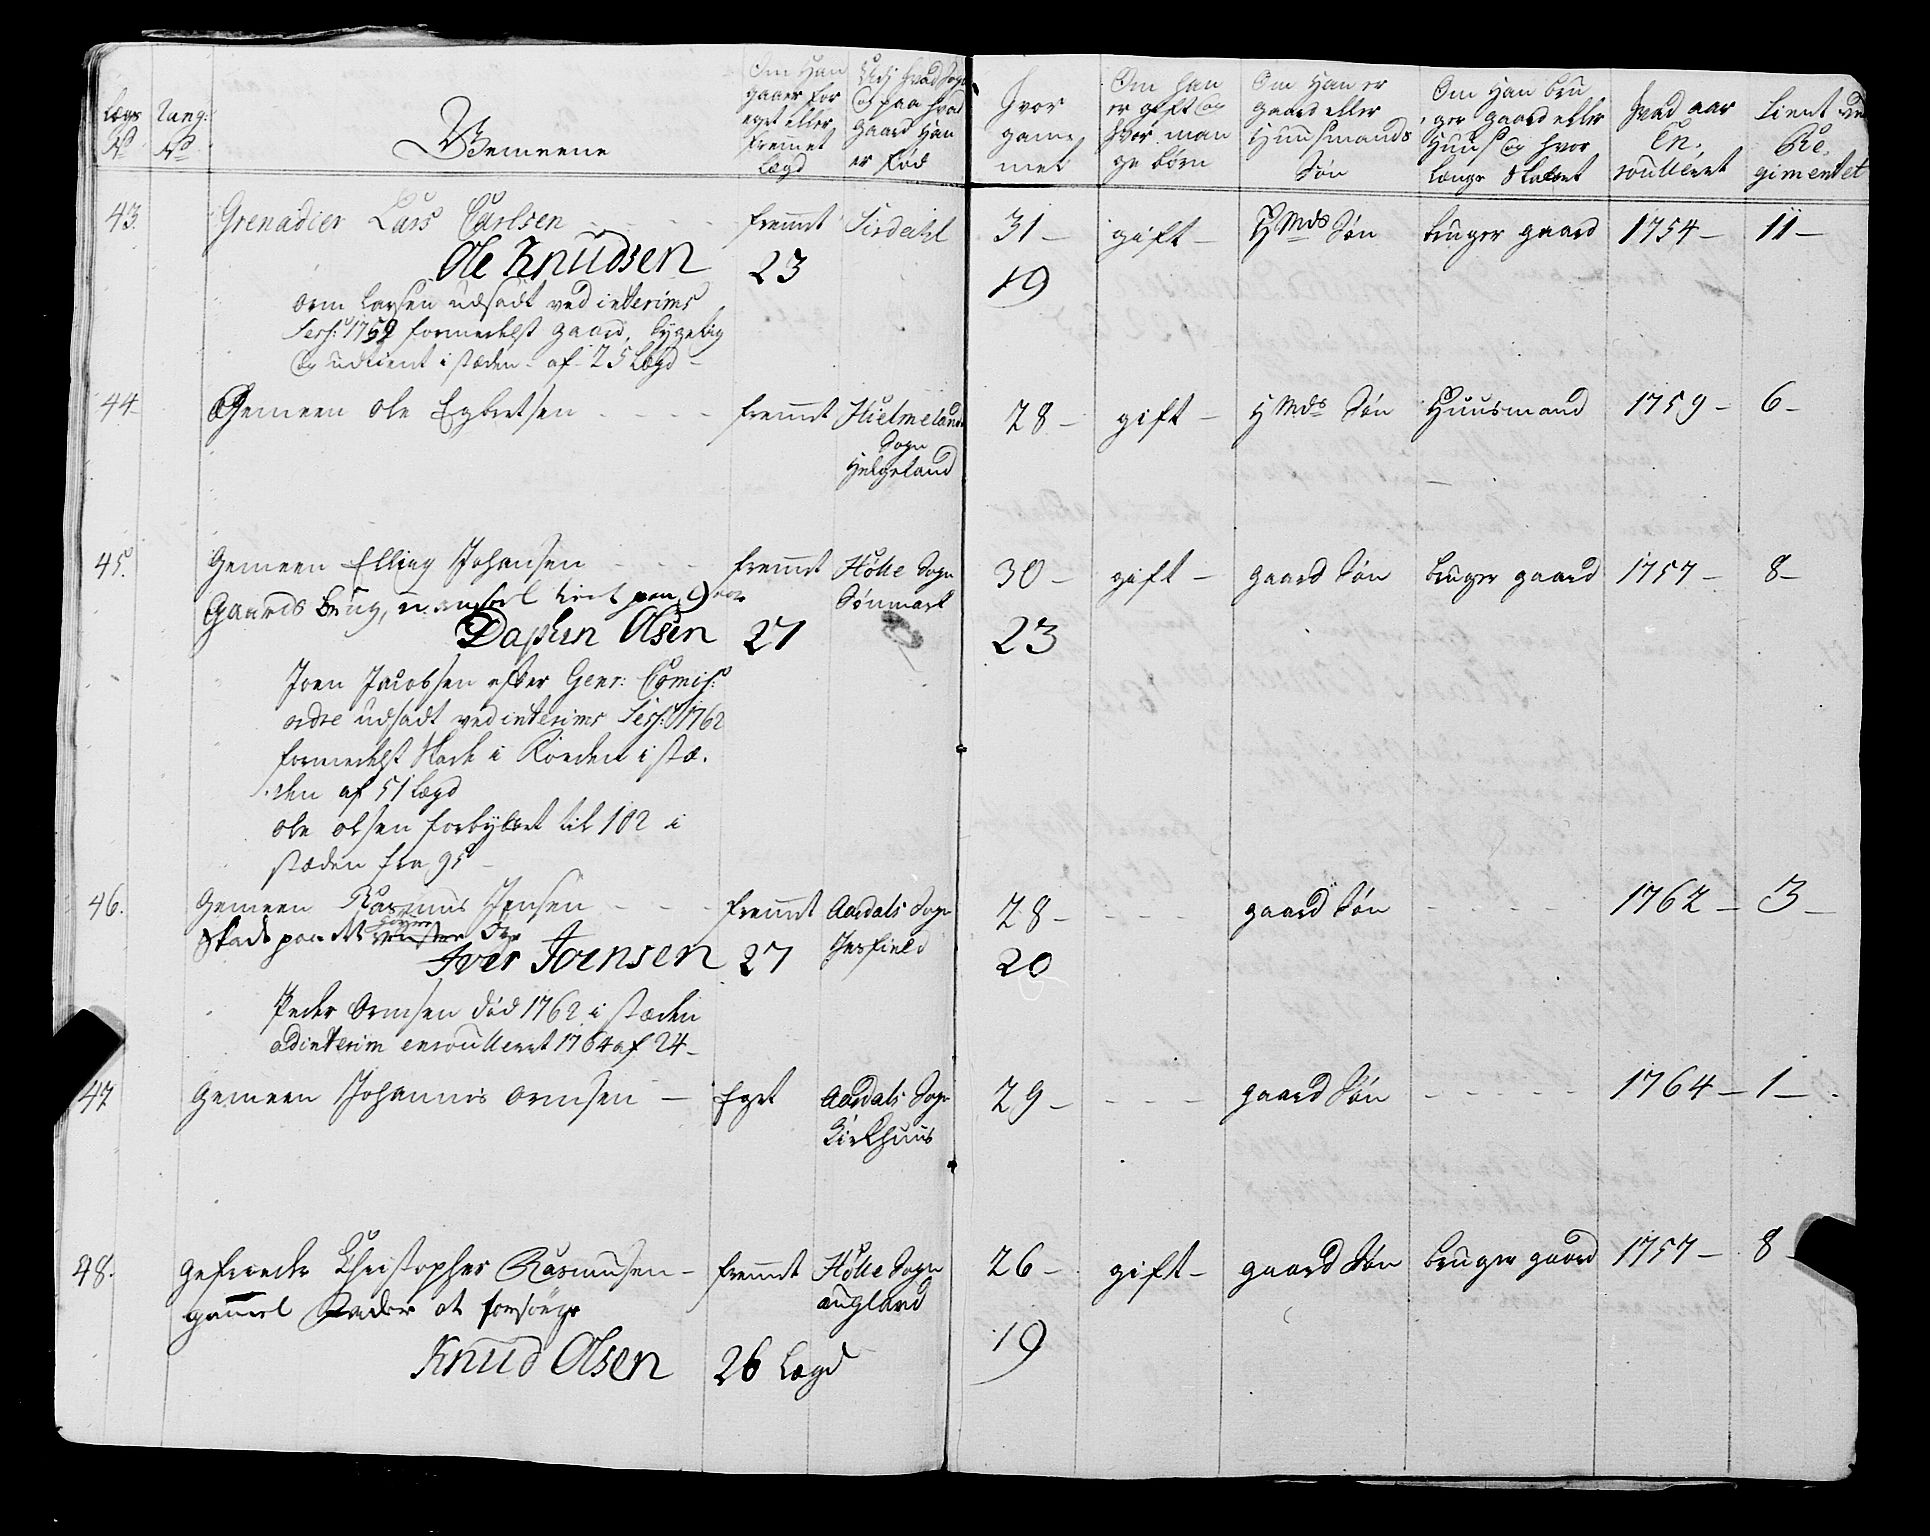 Lægs No
Rang: No
Gemeene
Om Han gaaer for eget eller fremet Lægd
Udj hvad Sogn og paa hvad Gaard Han er Fød
Hvor gamel
Om han er gift og hvor mange børn
Om Han er gaard eller Huusmands Søn
Om Han bruger gaard eller Huus og hvor længe
Hvad aar Enroulleret
Tient ved Regimentet
43. Grenadier Lars Carlsen - - - - fremmt Sirdahl 31 - gift - HMds Søn bruger gaard 1754 - 11 -
Ole Knudsen 23 19
Orm Larsen udsadt ved interims
Sess: 1759 formedelst gaard,
og udtient i stæden - af - 25 Lægd -
44 Gemeen Ole Egbretsen - - - - fremmt Hielmelands 28 - gift - HMds Søn Huusmand 1759 - 6 -
Sogn
Helgeland
45. Gemeen Elling Johansen - - - - fremmt Hølle Sogn 30 - gift - gaard Søn bruger gaard 1757 - 8 -
Gaards brug, tient paa 9 aar Sønmark
Daphin Olsen 27 23
Joen Jacobsen efter Genr: Comis:
ordre udsadt ved interims Sess: 1762
formedelst Skade i stæ-
den af 51 Lægd
Ole Olsen forbyttet til 102 i
stæden fra 95 -
46. Gemeen Rasmus Jensen - - - - fremmt Aardals Sogn 28 - - - - gaard Søn - - - - 1762 - 3 -
Skade paa det venstre høyre Øye
Iver Joensen 27 20
Peder Ormsen død 1762 i stæden
ad interim enroulleret 1764 af 24 -
47 Gemeen Johannes Ormsen - Eget Aardals Sogn 29 - - - - gaard Søn - - - - - 1764 - 1 -
Kirkhuus
48. Gefreeder Christopher Rasmusen - fremmt Hølle Sogn 26 - gift - gaard Søn bruger gaard 1757 - 8 -
gamel Fader at forsørge
Knud Olsen 26 Lægd 19